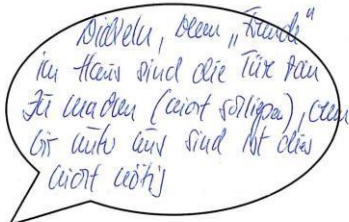 Dideln, wenn „Freunde“
im Haus sind die Tür dan
zu machen (nicht schließen), wenn
wir unter uns sind ist dies
nicht nötig